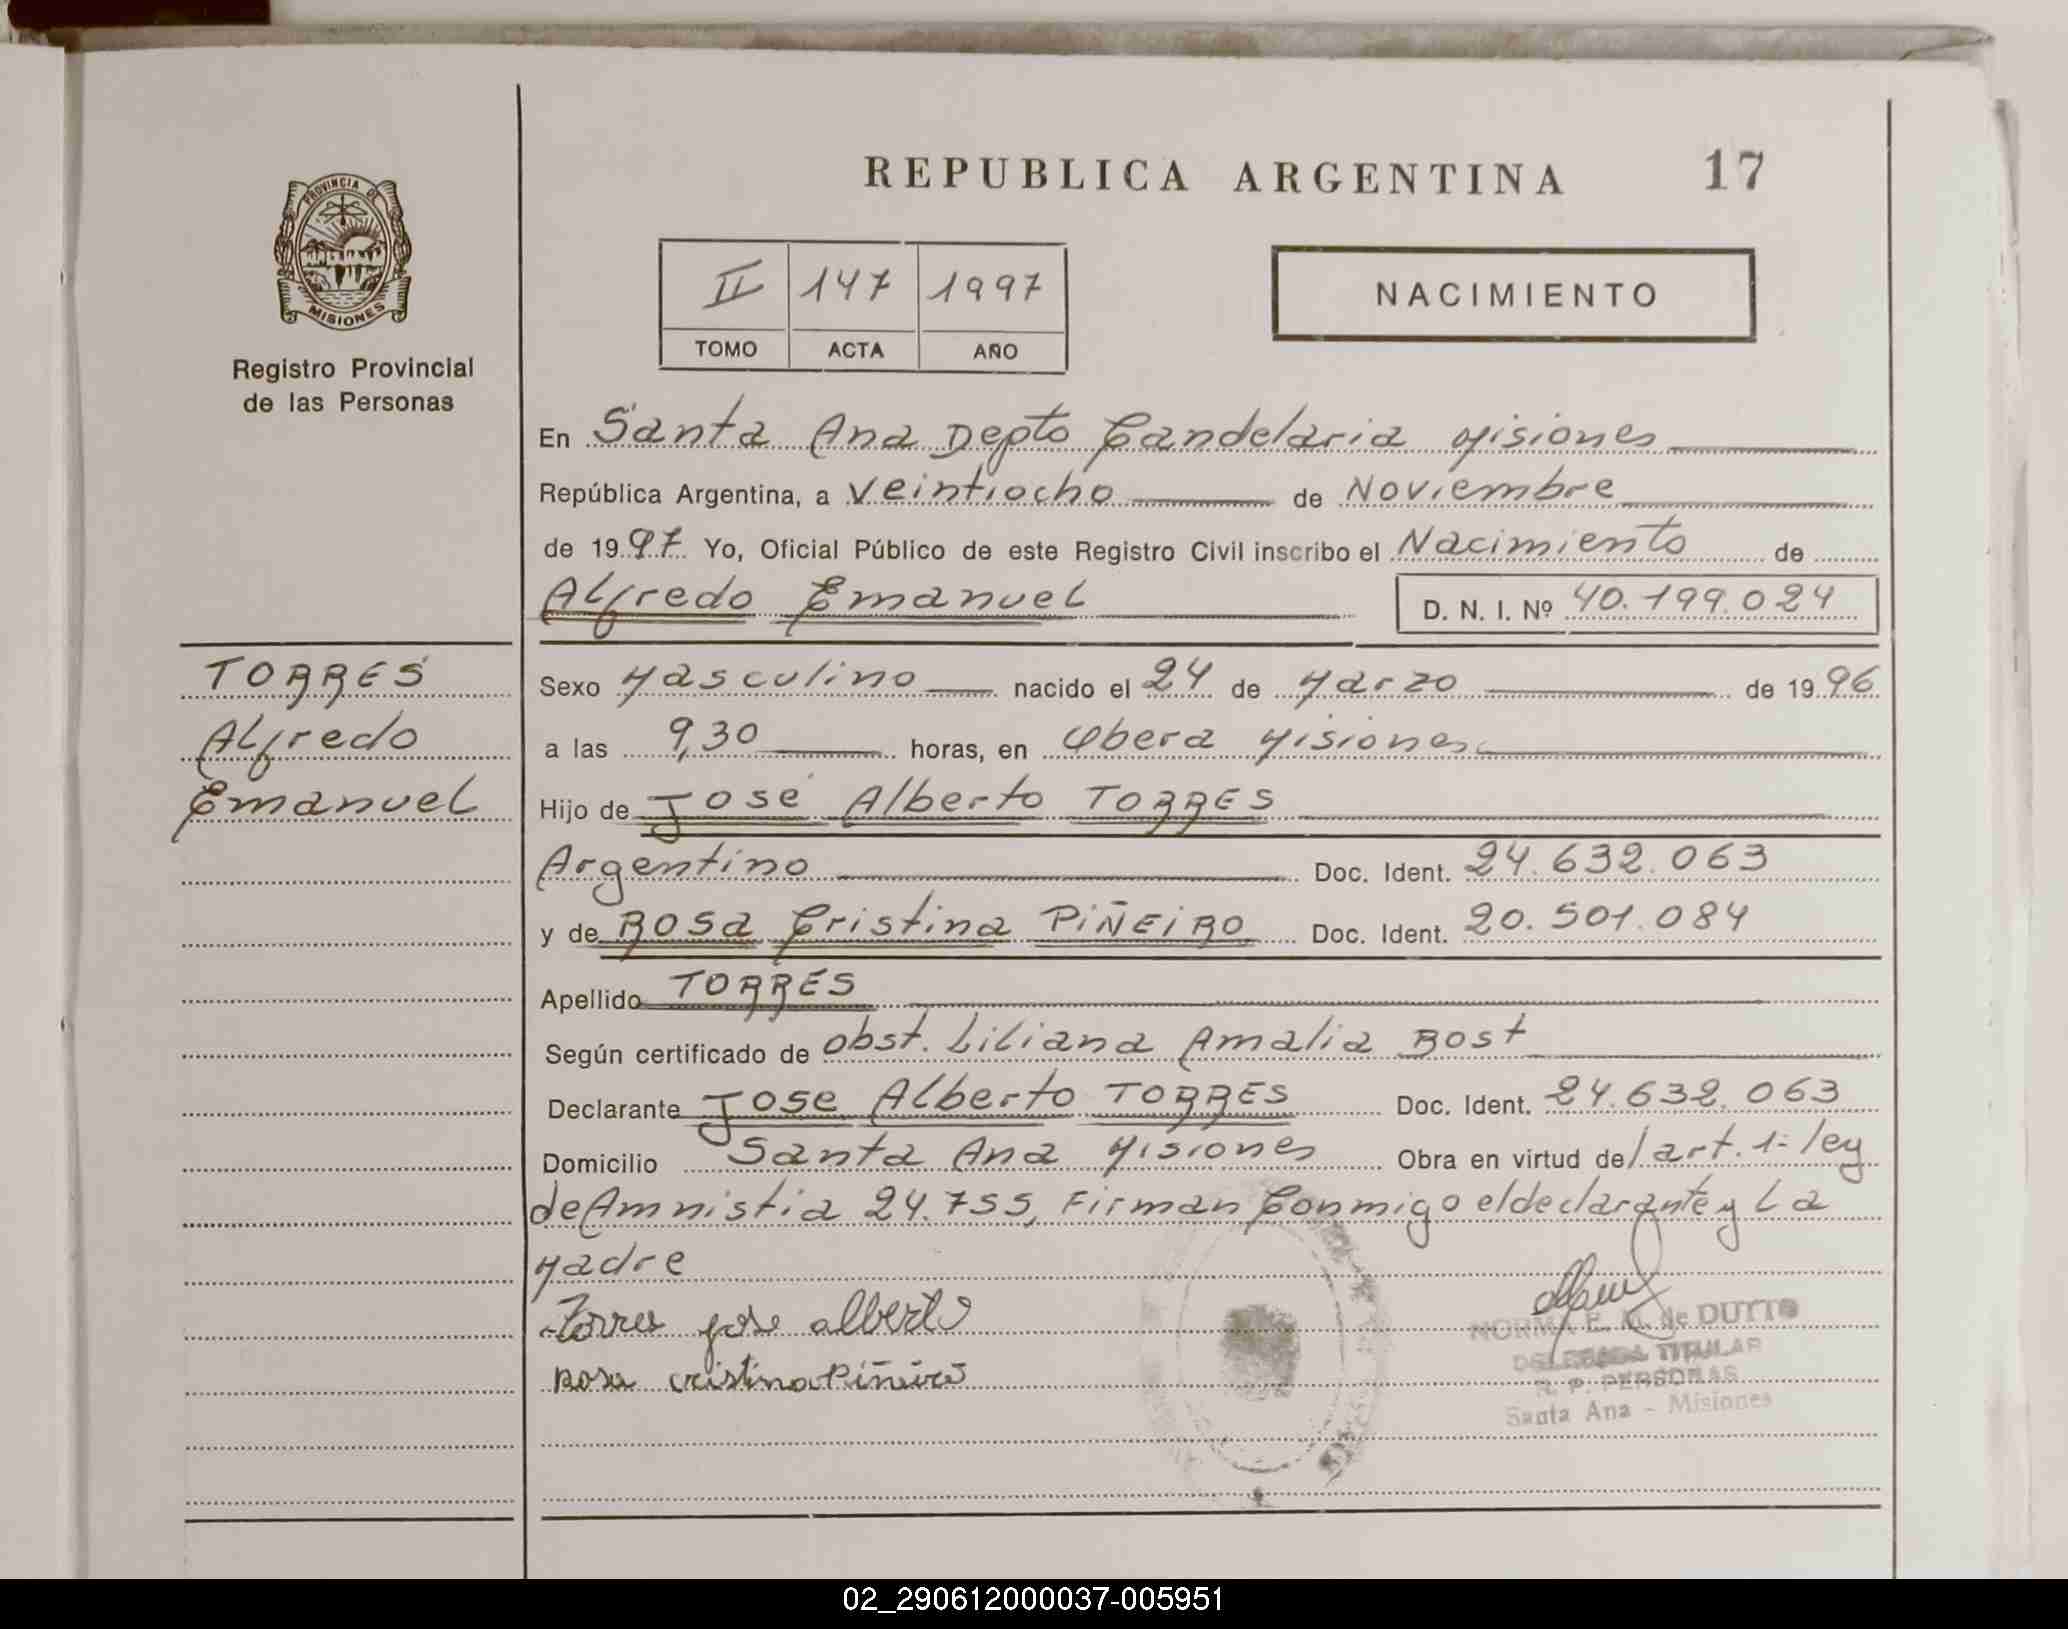 REPUBLICA ARGENTINA 17
PROVINCIA DE
MISIONES
Registro Provincial
de las Personas
II 147 1997
TOMO ACTA AÑO
NACIMIENTO
En Santa Ana Depto Candelaria Misiones
República Argentina, a Veintiocho de Noviembre
de 1997 Yo, Oficial Público de este Registro Civil inscribo el Nacimiento de
Alfredo Emanuel D. N. I. Nº 40.199.024
TORRES
Alfredo
Emanuel
Sexo Masculino nacido el 24 de Marzo de 1996
a las 9,30 horas, en Obera Misiones
Hijo de José Alberto TORRES
Argentino Doc. Ident. 24.632.063
y de Rosa Cristina PIÑEIRO Doc. Ident. 20.501.084
Apellido TORRES
Según certificado de obst. Liliana Amalia Bost
Declarante Jose Alberto TORRES Doc. Ident. 24.632.063
Domicilio Santa Ana Misiones Obra en virtud de/art. 1- ley
de Amnistia 24.755, Firman Conmigo el declarante y La
Madre
Torres jose alberto
Rosa cristina Piñeiro
NORMA E. M. de DUTTO
DELEGADA TITULAR
R. P. PERSONAS
Santa Ana - Misiones
02_290612000037-005951